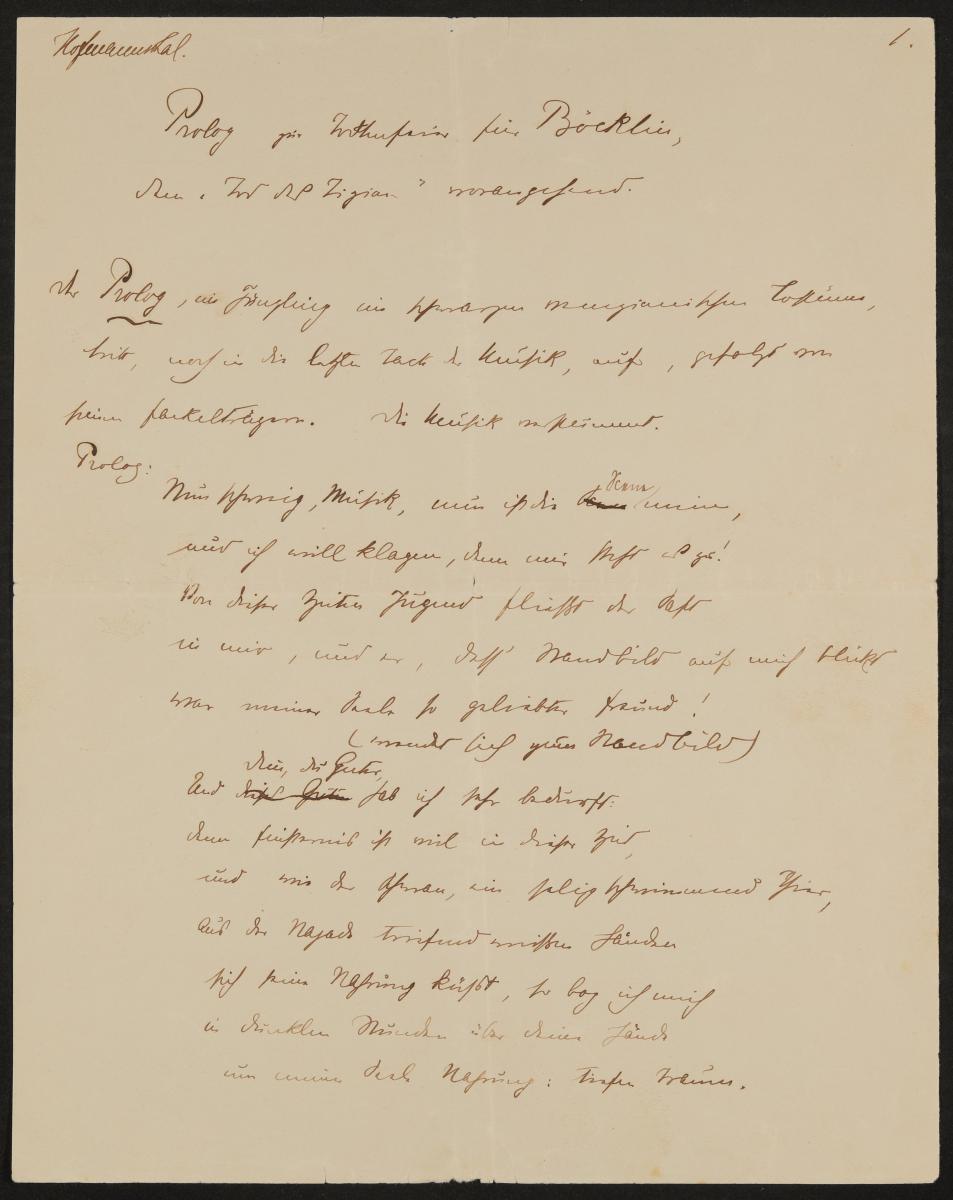 Hofmannsthal.
1.
Prolog zur Todtenfeier für Böcklin,
dem „Tod des Tizian" vorangehend.
Der Prolog, ein Jüngling im schwarzen venezianischen Costüme,
tritt, noch in die letzten Tacte der Musik, auf, gefolgt von
seinen Fackelträgern. Die Musik verstummt.
Prolog:
Scene
Nun schweig, Musik, nun ist die Scene mein,
und ich will klagen, denn mir steht es zu!
Von dieser Zeiten Jugend fliesst der Saft
in mir, und er, dess' Standbild auf mich blickt
war meiner Seele so geliebter Freund!
(wendet sich zum Standbild)
dein, du Guter,
Und dieses Guten hab ich sehr bedurft:
denn Finsternis ist viel in dieser Zeit,
und wie der Schwan, ein selig schwimmend Thier,
aus der Najade triefend weissen Händen
sich seine Nahrung küsst, so bog ich mich
in dunklen Stunden über deine Hände
um meiner Seele Nahrung: tiefen Traum.